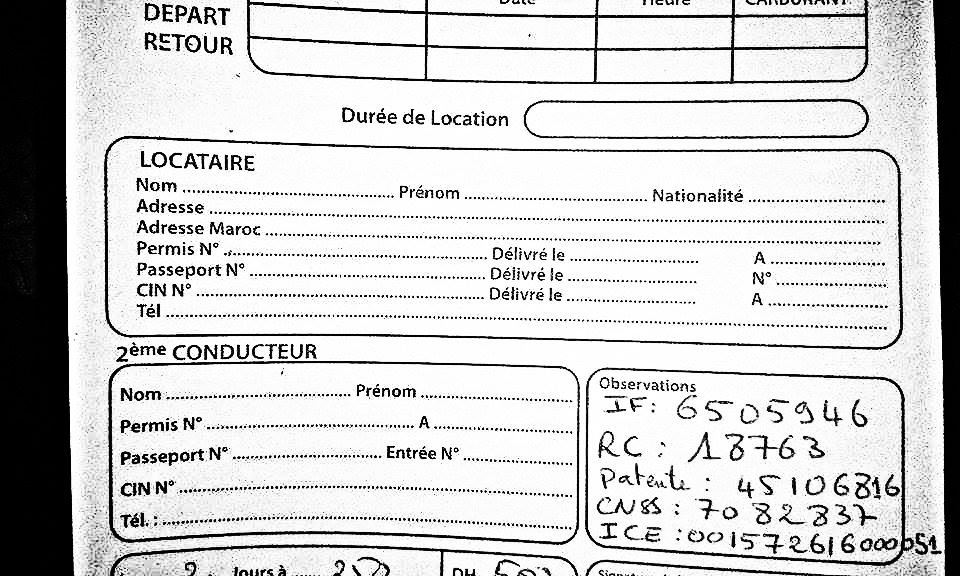 Date Heure CARBURANT
DEPART
RETOUR
Durée de Location
LOCATAIRE
Nom ........ Prénom ........ Nationalité ........
Adresse ........
Adresse Maroc ........
Permis N° ........ Délivré le ........ A ........
Passeport N° ........ Délivré le ........ N° ........
CIN N° ........ Délivré le ........ A ........
Tél ........
2ème CONDUCTEUR
Nom ........ Prénom ........
Permis N° ........ A ........
Passeport N° ........ Entrée N° ........
CIN N° ........
Tél. : ........
Observations
IF: 6505946
RC : 18763
Patente : 45106816
CNSS : 7082837
ICE : 001572616000051
2 Jours à ........ 250 DH